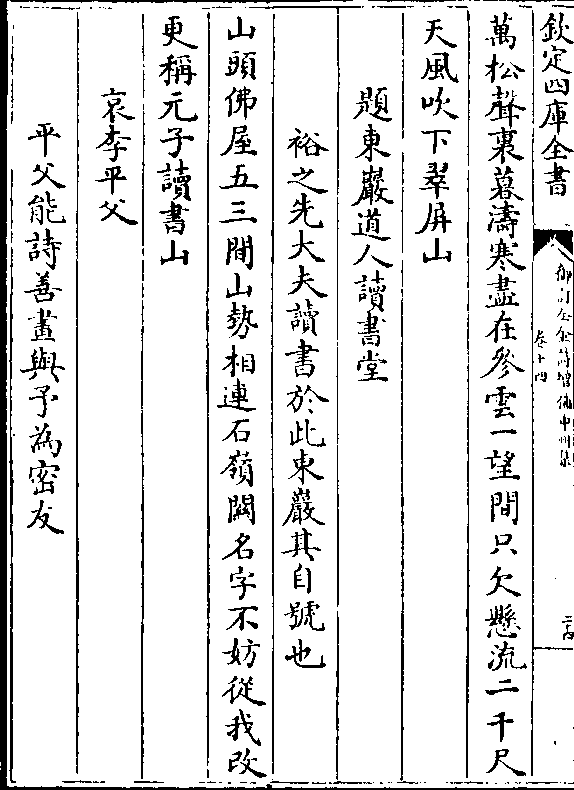 欽定四庫全書
御訂全金詩增補中州集
卷十四
萬松聲裏暮濤寒盡在參雲一望間只欠懸流二千尺
天風吹下翠屏山
題東巖道人讀書堂
裕之先大夫讀書於此東巖其自號也
山頭佛屋五三間山勢相連石嶺關名字不妨從我改
更稱元子讀書山
哀李平父
平父能詩善畫與予為密友